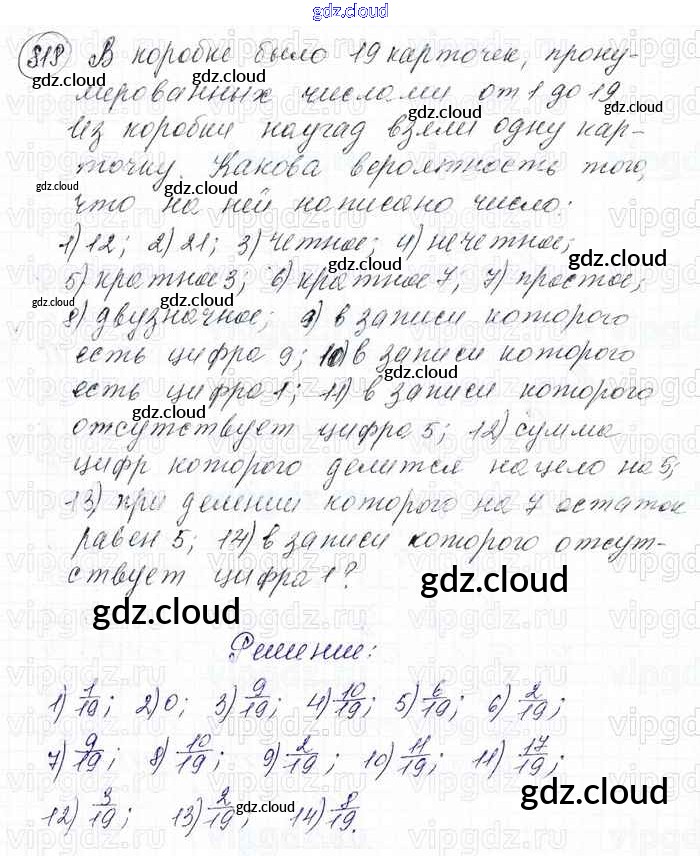 gdz.cloud
818 В коробке было 19 карточек, прону-
мерованных числами от 1 до 19
Из коробки наугад взяли одну кар-
точку. Какова вероятность того,
что на ней написано число:
1) 12; 2) 21; 3) четное; 4) нечетное;
5) кратное 3; 6) кратное 7; 7) простое;
8) двузначное; 9) в записи которого
есть цифра 9; 10) в записи которого
есть цифра 1; 11) в записи которого
отсутствует цифра 5; 12) сумма
цифр которого делится нацело на 5;
13) при делении которого на 7 остаток
равен 5; 14) в записи которого отсут-
ствует цифра 1?
gdz.cloud
Решение:
1) 1/19; 2) 0; 3) 9/19; 4) 10/19; 5) 6/19; 6) 2/19;
7) 9/19; 8) 10/19; 9) 2/19; 10) 11/19; 11) 17/19;
12) 3/19; 13) 2/19; 14) 8/19.
gdz.cloud